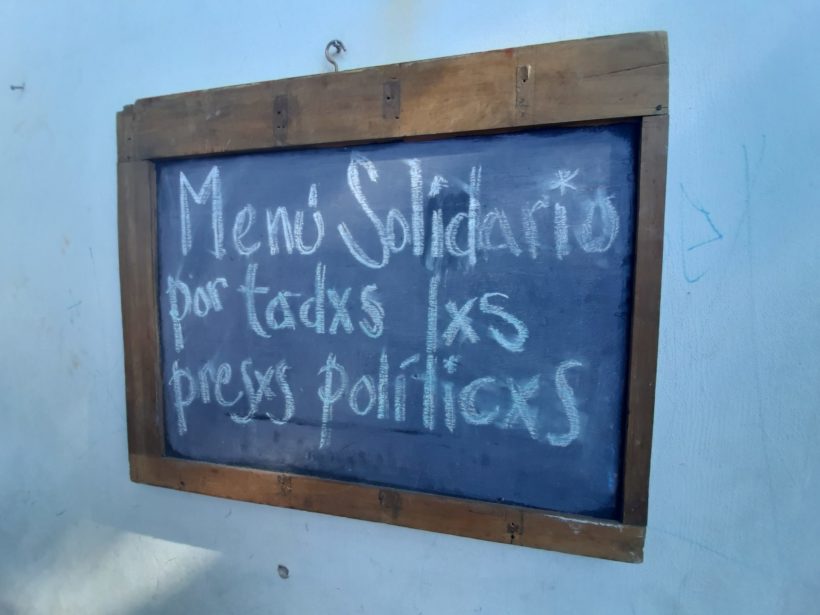 Menú Solidario
por tadxs lxs
presxs políticxs